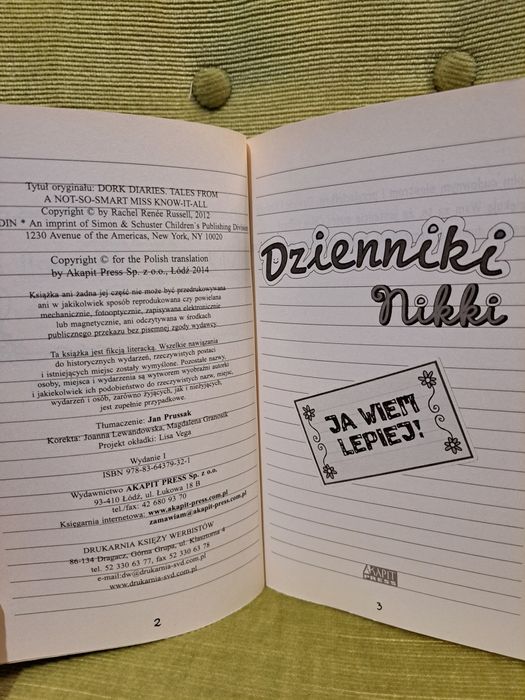 Tytuł oryginału: DORK DIARIES. TALES FROM
A NOT-SO-SMART MISS KNOW-IT-ALL
Copyright © by Rachel Renée Russell, 2012
DIN * An imprint of Simon & Schuster Children's Publishing Division
1230 Avenue of the Americas, New York, NY 10020
Copyright © for the Polish translation
by Akapit Press Sp. z o.o., Łódź 2014
Książka ani żadna jej część nie może być przedrukowywana
ani w jakikolwiek sposób reprodukowana czy powielana
mechanicznie, fotooptycznie, zapisywana elektronicznie
lub magnetycznie, ani odczytywana w środkach
publicznego przekazu bez pisemnej zgody wydawcy.
Ta książka jest fikcją literacką. Wszelkie nawiązania
do historycznych wydarzeń, rzeczywistych postaci
i istniejących miejsc zostały wymyślone. Pozostałe nazwy,
osoby, miejsca i wydarzenia są wytworem wyobraźni autorki
i jakiekolwiek ich podobieństwo do rzeczywistych nazw, miejsc,
wydarzeń i osób, zarówno żyjących, jak i nieżyjących,
jest zupełnie przypadkowe.
Tłumaczenie: Jan Prussak
Korekta: Joanna Lewandowska, Magdalena Granosik
Projekt okładki: Lisa Vega
Wydanie I
ISBN 978-83-64379-32-1
Wydawnictwo AKAPIT PRESS Sp. z o.o.
93-410 Łódź, ul. Łukowa 18 B
tel./fax: 42 680 93 70
Księgarnia internetowa: www.akapit-press.com.pl
zamawiam@akapit-press.com.pl
DRUKARNIA KSIĘŻY WERBISTÓW
86-134 Dragacz, Górna Grupa, ul. Klasztorna 4
tel. 52 330 63 77, fax 52 330 63 78
e-mail:dw@drukarnia-svd.com.pl
www.drukarnia-svd.com.pl
2
Dzienniki
Nikki
JA WIEM
LEPIEJ!
AKAPIT
PRESS
3